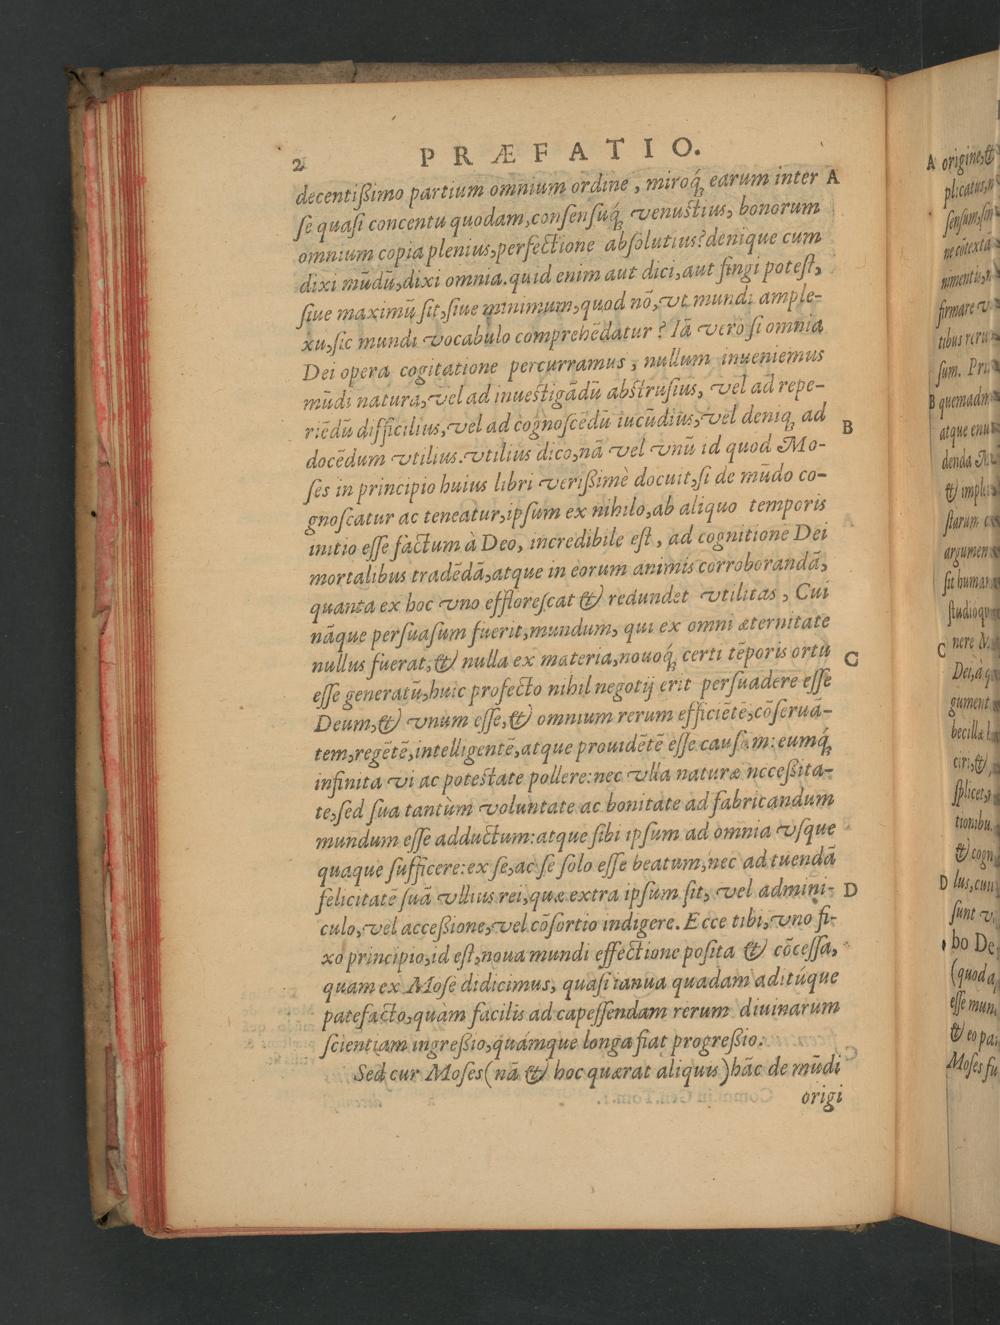 2 PRÆFATIO.
decentißimo partium omnium ordine, miroq́; earum inter A
se quasi concentu quodam, consensuq́; venustius, bonorum
omnium copia plenius, perfectione absolutius? denique cum
dixi mūdū, dixi omnia. quid enim aut dici, aut fingi potest,
siue maximū sit, siue minimum, quod nō, vt mundi ample-
xu, sic mundi vocabulo comprehēdatur? Iā vero si omnia
Dei opera cogitatione percurramus, nullum inueniemus
mūdi natura, vel ad inuestigādū abstrusius, vel ad repe-
riēdū difficilius, vel ad cognoscēdū iucūdius, vel deniq; ad B
docēdum vtilius. vtilius dico, nā vel vnū id quod Mo-
ses in principio huius libri verißimè docuit, si de mūdo co-
gnoscatur ac teneatur, ipsum ex nihilo, ab aliquo temporis
initio esse factum à Deo, incredibile est, ad cognitione Dei
mortalibus tradēdā, atque in eorum animis corroborandā,
quanta ex hoc vno efflorescat & redundet vtilitas, Cui
nāque persuasum fuerit, mundum, qui ex omni æternitate
nullus fuerat, & nulla ex materia, nouoq́; certi tēporis ortu C
esse generatū, huic profecto nihil negotij erit persuadere esse
Deum, & vnum esse, & omnium rerum efficiētē, cōseruā-
tem, regētē, intelligentē, atque prouidētē esse causam: eumq́;
infinita vi ac potestate pollere: nec vlla naturæ ncceßita-
te, sed sua tantùm voluntate ac bonitate ad fabricandum
mundum esse adductum: atque sibi ipsum ad omnia vsque
quaque sufficere: ex se, ac se solo esse beatum, nec ad tuendā
felicitatē suā vllius rei, quæ extra ipsum sit, vel admini- D
culo, vel acceßione, vel cōsortio indigere. Ecce tibi, vno fi-
xo principio, id est, noua mundi effectione posita & cōcessa,
quam ex Mose didicimus, quasi ianua quadam aditúque
patefacto, quam facilis ad capessendam rerum diuinarum
scientiam ingreßio, quámque longa fiat progreßio.
Sed cur Moses (nā & hoc quærat aliquis) hāc de mūdi
origi
A origine, &
plicatus,
B quemadm
atque enu
denda
& impl
argumen
sit human
C nere
D lus, cum
sunt
bo De
(quod a
esse mun
& eo
Moses fu